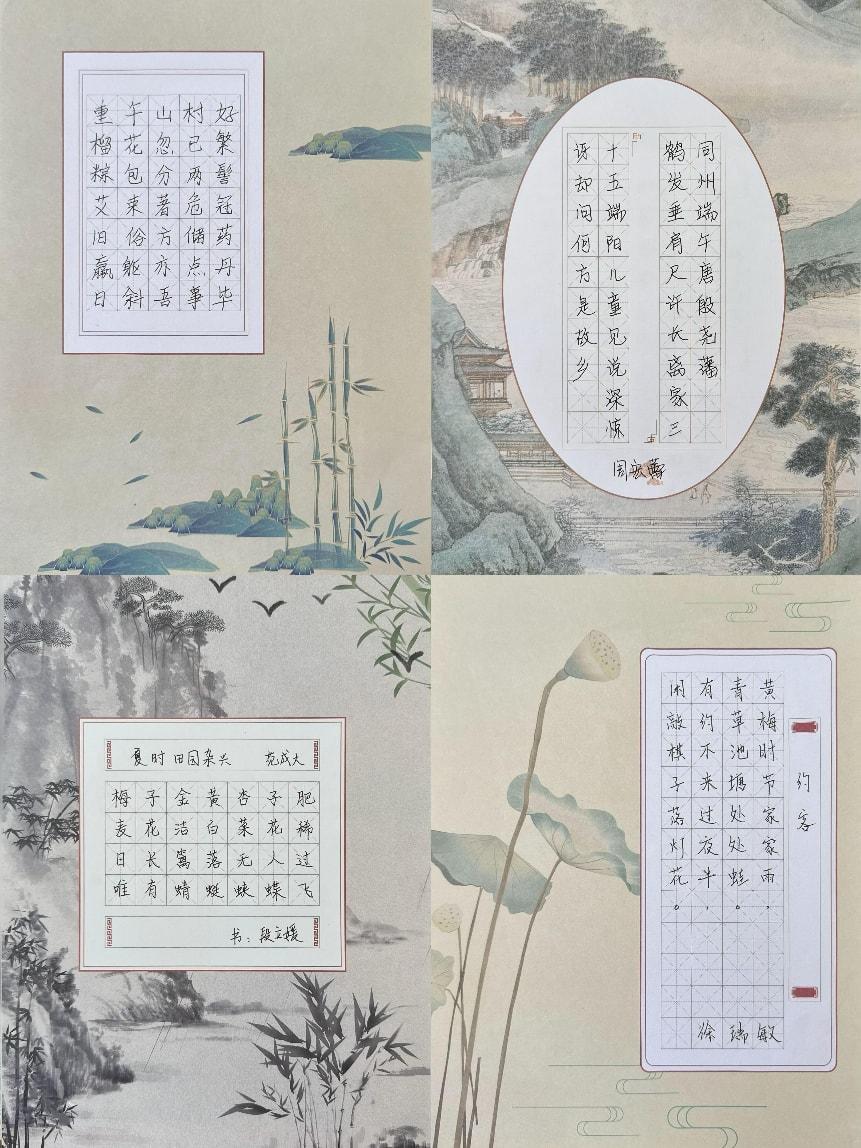 重午山村好
榴花忽已繁
粽包分两髻
艾束著危冠
旧俗方储药
羸躯亦点丹
日斜吾事毕
同州端午唐殷尧藩
鹤发垂肩尺许长离家三
十五端阳儿童见说深惊
讶却问何方是故乡
夏时田园杂兴 范成大
梅子金黄杏子肥
麦花洁白菜花稀
日长篱落无人过
唯有蜻蜓蛱蝶飞
书:段立媛
约客
黄梅时节家家雨,
青草池塘处处蛙。
有约不来过夜半,
闲敲棋子落灯花。
徐瑞敏